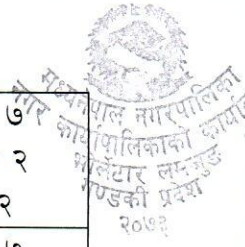 मध्यनेपाल नगरपालिका
नगर कार्यपालिकाको कार्यालय
भोर्लेटार लमजुङ
गण्डकी प्रदेश
२०७३
७
२
२